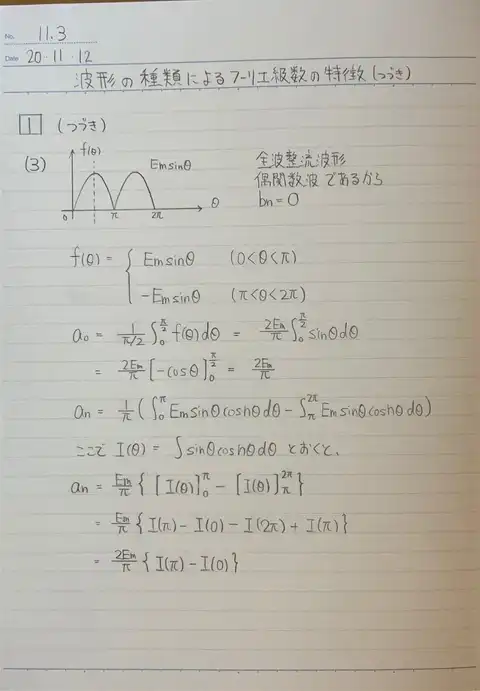 No. 11.3
Date 20・11・12
波形の種類によるフーリエ級数の特徴(つづき)
1 (つづき)
(3) f(θ) Emsinθ θ 0 π 2π
全波整流波形
偶関数波であるから
bn = 0
f(θ) = { Emsinθ (0<θ<π)
-Emsinθ (π<θ<2π)
a₀ = 1/(π/2) ∫₀^(π/2) f(θ)dθ = 2Em/π ∫₀^(π/2) sinθdθ
= 2Em/π [-cosθ]₀^(π/2) = 2Em/π
an = 1/π (∫₀^π Em sinθcosnθdθ - ∫_π^(2π) Em sinθcosnθdθ)
ここで I(θ) = ∫sinθcosnθdθ とおくと、
an = Em/π { [I(θ)]₀^π - [I(θ)]_π^(2π) }
= Em/π { I(π) - I(0) - I(2π) + I(π) }
= 2Em/π { I(π) - I(0) }